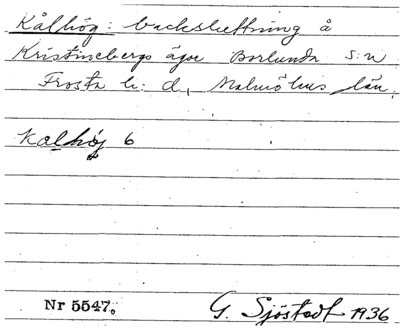 Kålhög: backsluttning å
Kristinebergs ägor Borlunda s:n
Frosta h:d, Malmöhus län.
Kalhöj 6
Nr 5547.
G. Sjöstedt 1936